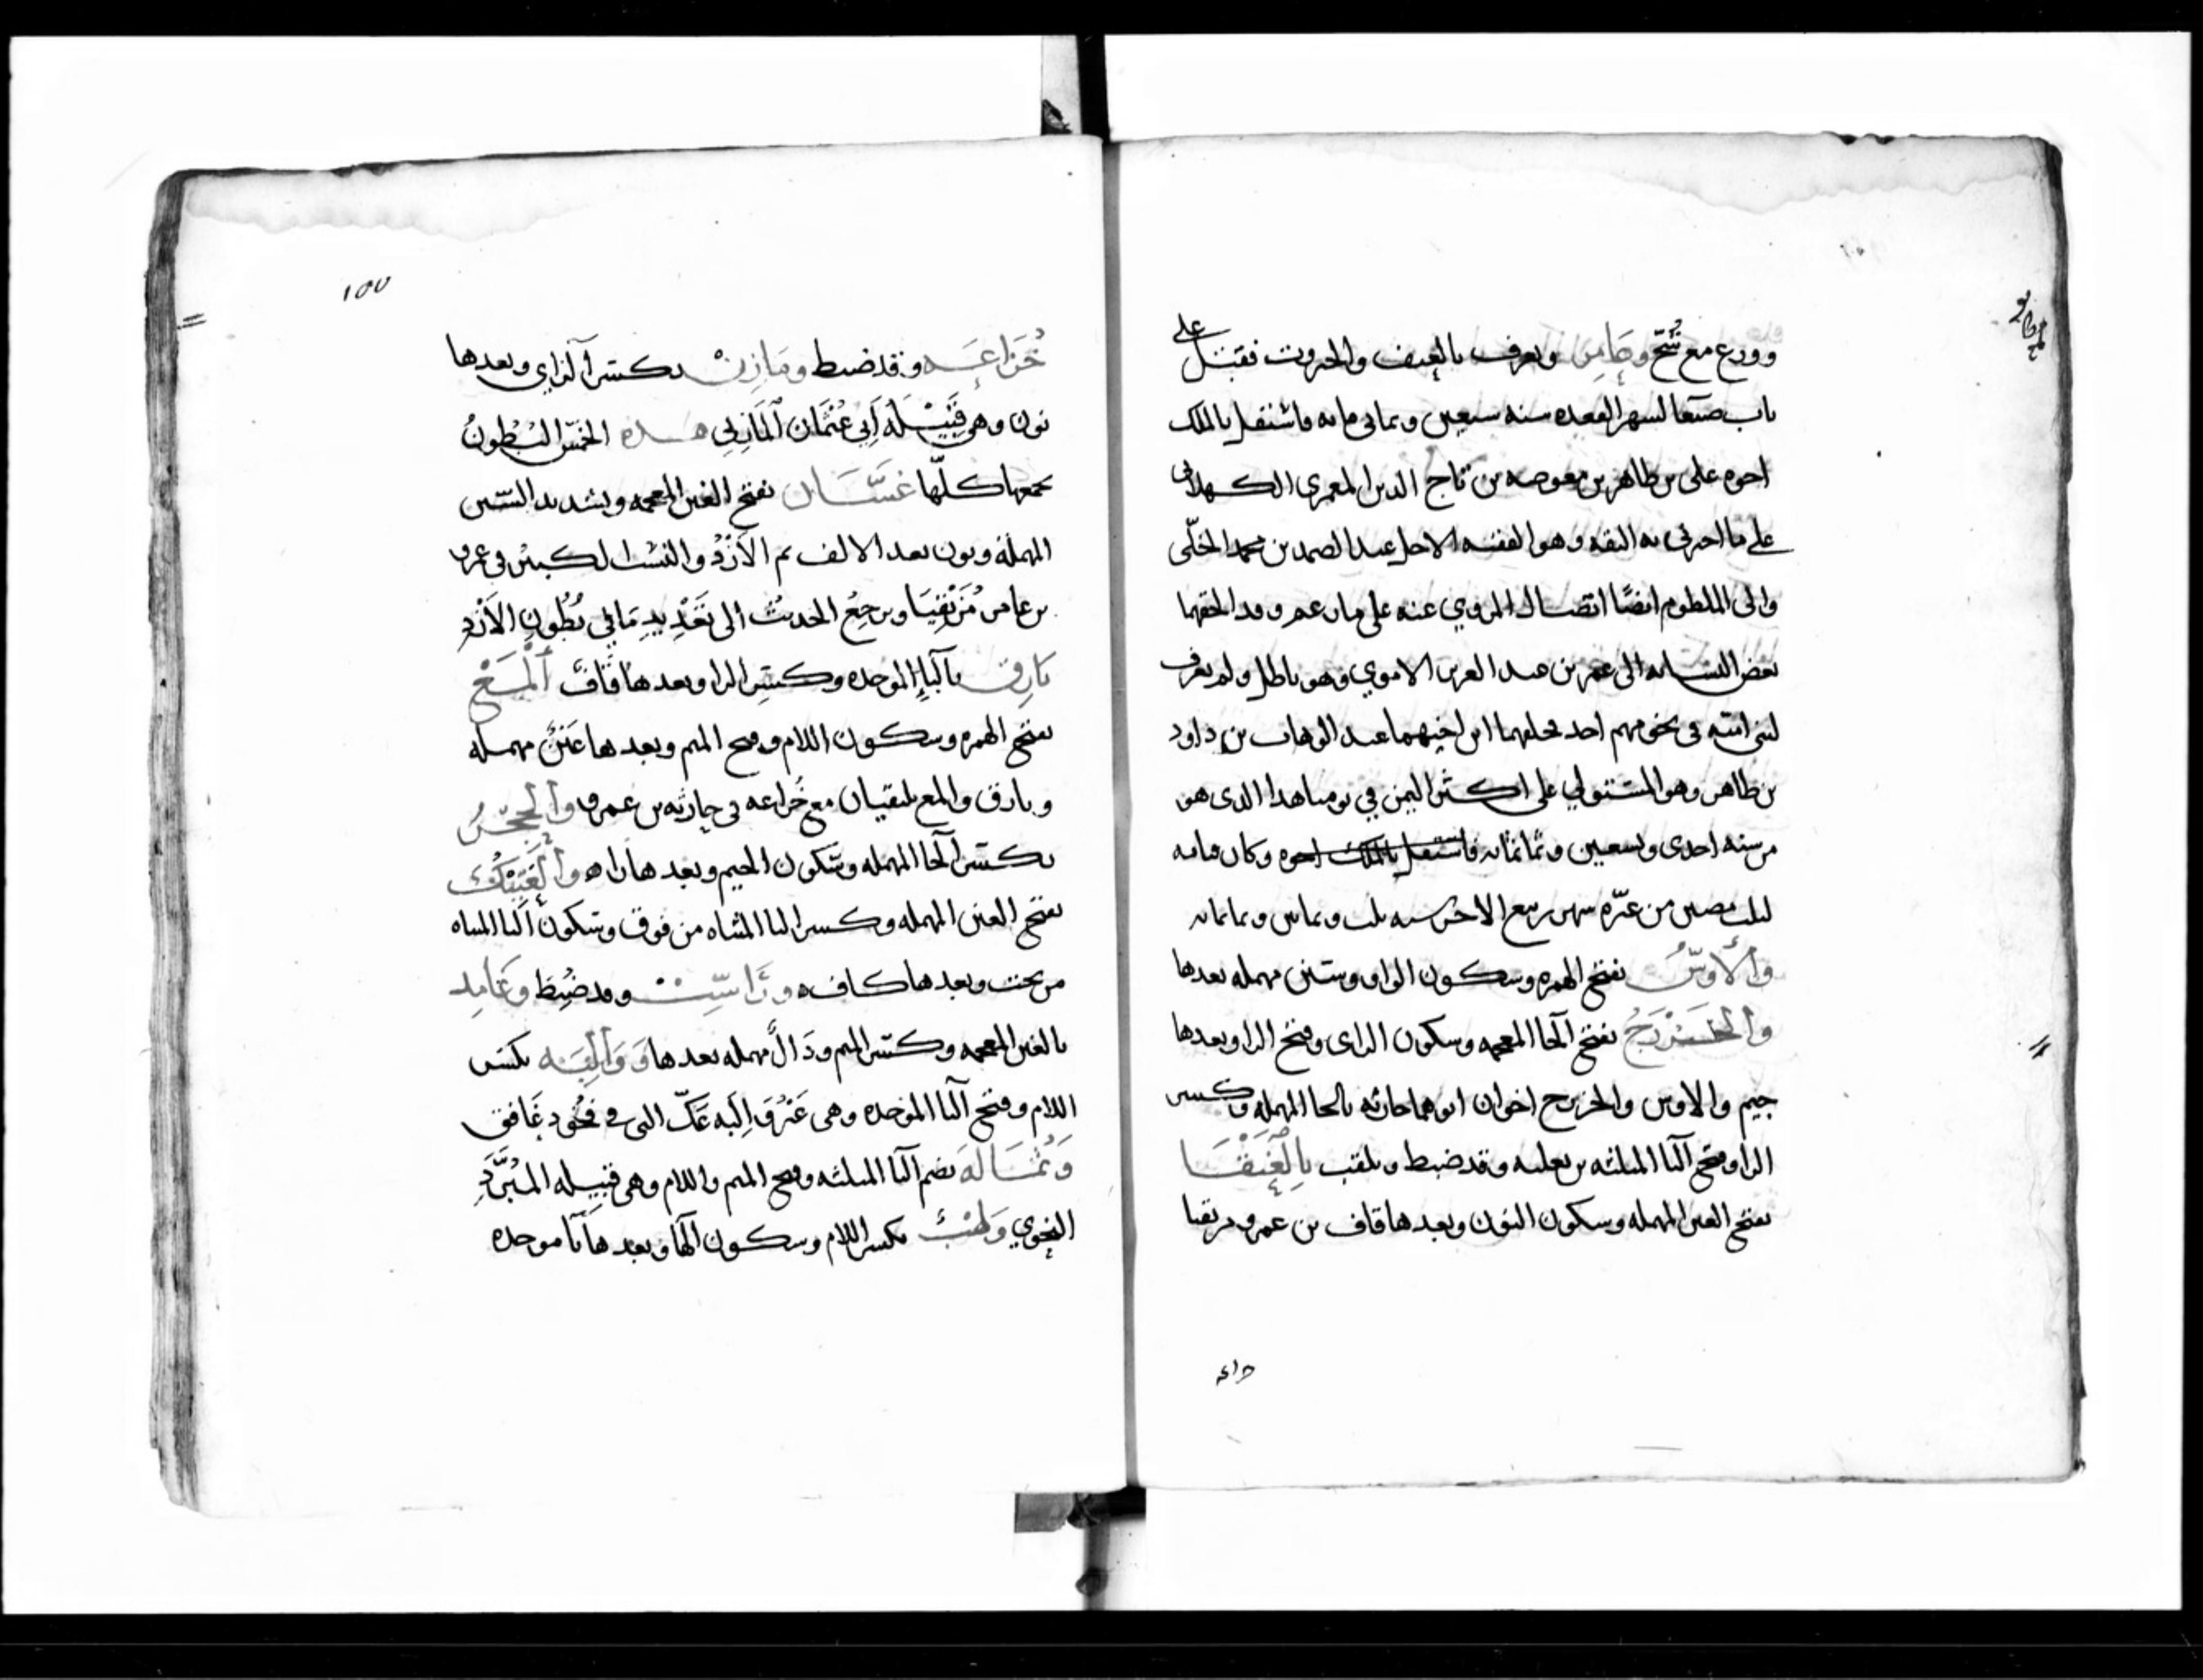 وورع مع شح وحامر ويعرف بالعنف والجروت فقتل على
باب صنعا لشهر القعده سنه سبعين وثماني مايه فاشتغل بالملك
اخوه على بن طاهر بن معوضه بن تاج الدين المعمري الكهلاني
على ما اخبرني به الثقه وهو الفقيه الاجل عبد الصمد بن محمد الخلّي
والى الملطوم ايضًا اتصال المروي عنه على مان عم وقد الحقهما
بعض النسابه الى عمر بن عبد العزيز الاموي وهو باطل ولم يعرف
لبنى اميّه في نحوهم احد فخلفهما ابن اخيهما عبد الوهاب بن داود
بن طاهر وهو المستولي على اكثر اليمن في يومنا هذا الذى هو
من سنه احدى وسعين وثمانمايه وكان قيامه
لثلث مضين من غرّه شهر ربيع الاخر سنه ثلث وثمانين وثمانمايه
والأوسُ بفتح الهمزه وسكون الواو وسين مهمله بعدها
والخَزْرَجُ بفتح الخا المعجمه وسكون الزاى وفتح الرا وبعدها
جيم والاوس والخزرج اخوان ابوهما حارثه بالحا المهمله وكسر
الرا وفتح الثا المثلثه بن ثعلبه وقد ضبط ويلقب بِالْعَنْقَا
بفتح العين المهمله وسكون النون وبعدها قاف بن عمرو مزيقيا
خزاعه
١٥٧
خُزاعَه وقد ضبط ومَازِنْ بكسر الزاي وبعدها
نون وهي قَبِيْلَة أَبي عُثْمَان الْمَازِنِي هذه الخَمْس البُطُونُ
يجمعها كلّها غَسَّان بفتح الغين المعجمه وتشديد السّين
المهملة ونون بعد الالف ثم الأزْدُ والنسب الكبير في عمرو
بن عامر مُزَيْقِيَا ويرجِعُ الحديثُ الى تعْدِيدِ مَا في بُطُونِ الأَزْدِ
بَارِق بالبا الموحده وكسر الرا وبعدها قاف ألْمَعْ
بفتح الهمزه وسكون اللام وفتح الميم وبعدها عَيْنٌ مهمله
وبارق والمع يلتقيان مع خُزاعه في حارثه بن عمرو والحِجْرُ
بكسر الحا المهمله وسكون الجيم وبعدها را والعَتِيْكُ
بفتح العين المهمله وكسر التا المثناه من فوق وسكون اليا المثناه
من تحت وبعدها كاف ورَاسِبْ وقد ضُبِطَ وغَامِد
بالغين المعجمه وكسر الميم ودَالٌ مهمله بعدها وَوَالِبَه بكسر
اللام وفتح البا الموحده وهي عَنْزُوَ اِلَيه عَكّ التى في نحُود غَافق
وَثُمَالَه بضم الثا المثلثه وفتح الميم واللام وهي قبيله المُبَرَّدِ
النحوي ولِهْبٌ بكسر اللام وسكون الها وبعدها بَا موحده